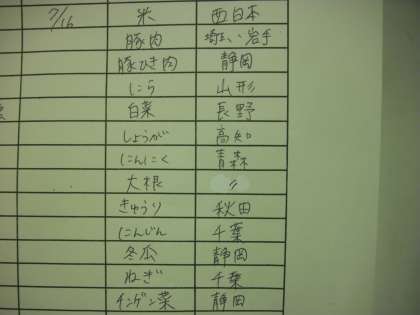 7/16 米 西日本
豚肉 埼玉、岩手
豚ひき肉 静岡
にら 山形
白菜 長野
しょうが 高知
にんにく 青森
大根 〃
きゅうり 秋田
にんじん 千葉
冬瓜 静岡
ねぎ 千葉
チンゲン菜 静岡